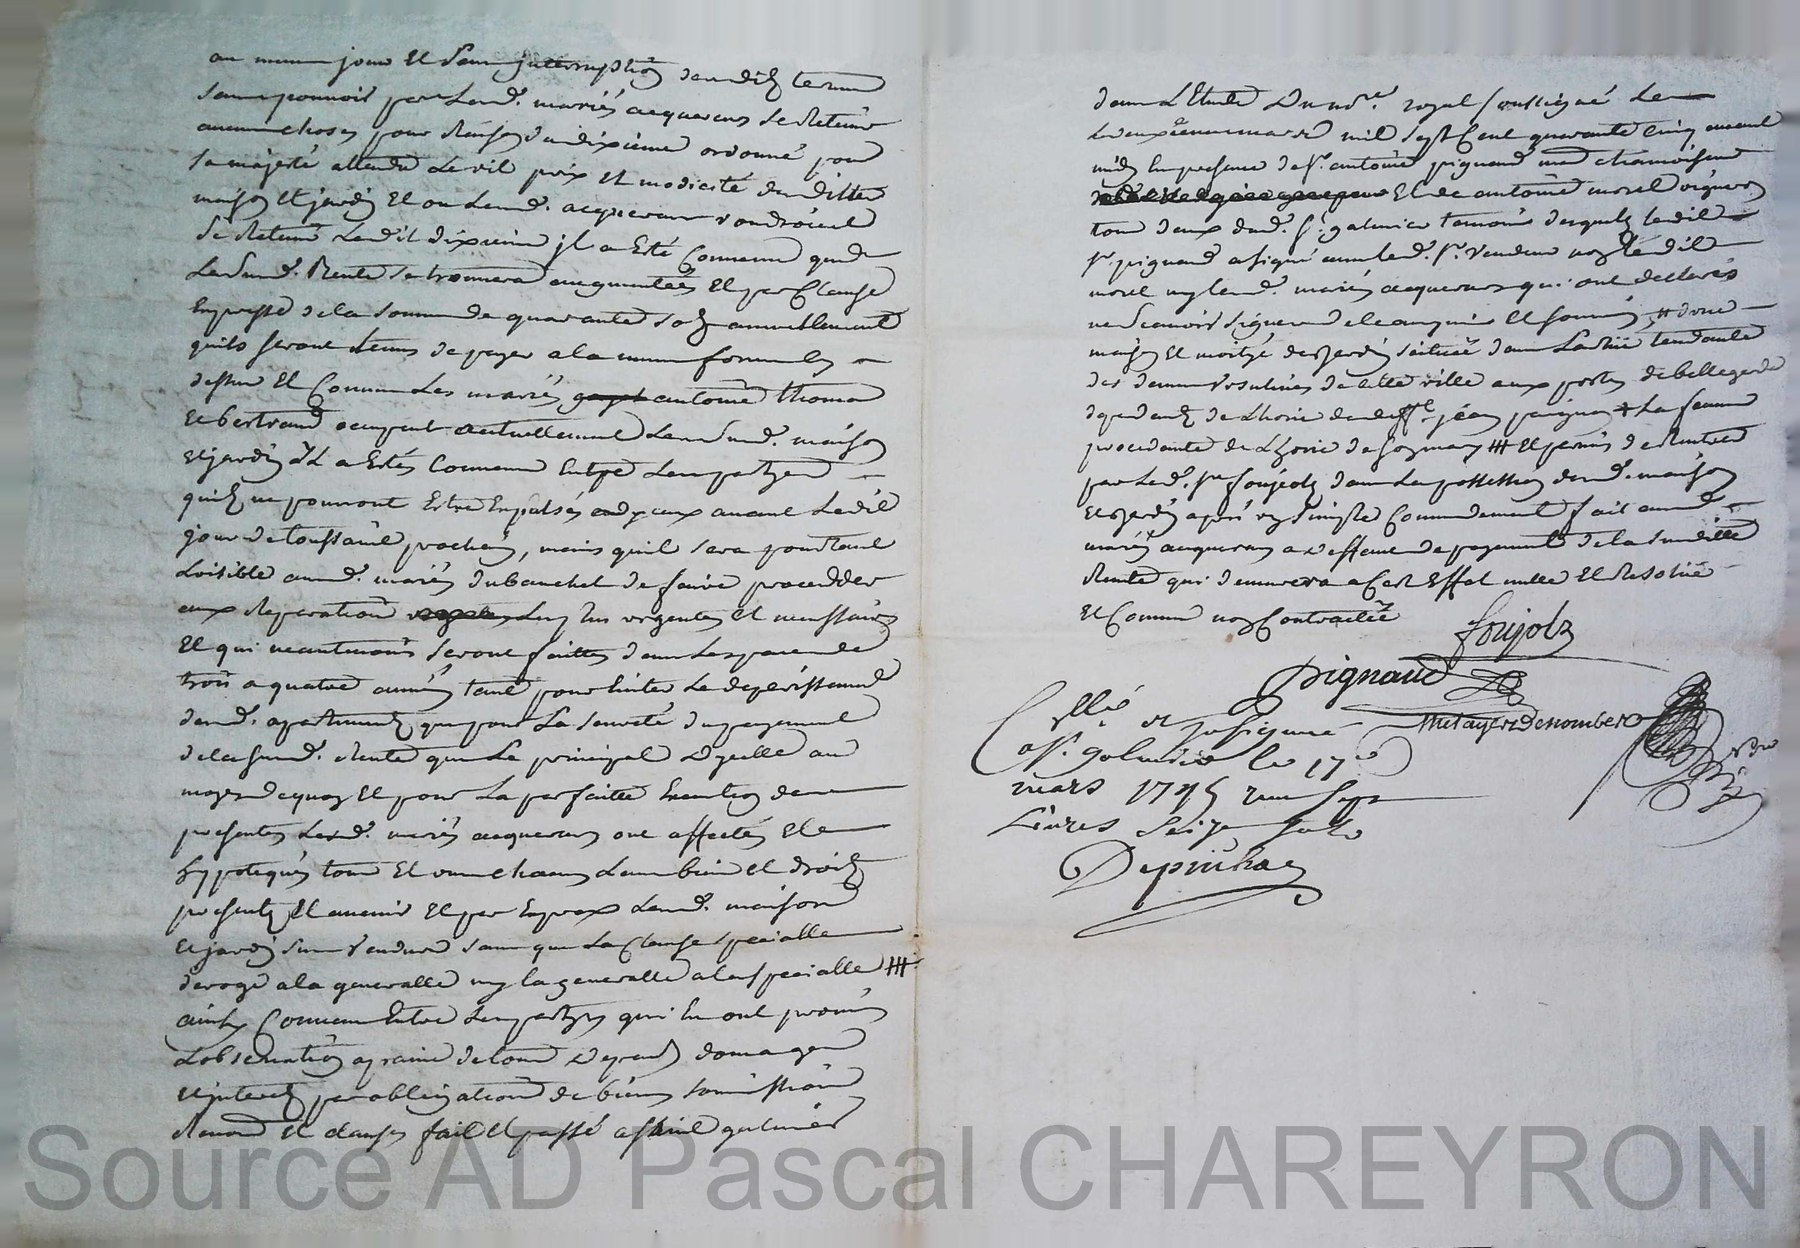 au meme jour et sans interruption desdits termes
sans pouvoir par lesd. mariés acquereurs de retenir
aucune choses pour raison du dixieme ordonné pour
sa majesté attendu le vil prix et modicité desdittes
maison et jardin et ou lesd. acquereurs voudroient
se retenir ledit dixieme jl a esté convenu que
la susd. Rente se trouvera augmentées et par clause
expresse de la somme de quarante sols annuellement
quils seront tenus de payer a la meme forme
dessus et comme les mariés antoine thomas
et bertrand ocupent actuellement lesusd. maison
et jardin jL a estés convenu entre les partyes
quils ne pourront estre expulsés avant ledit
jour de toussaint prochain, mais quil sera pourtant
loisible ausd. mariés dubanchet de faire procedder
aux reparations les plus urgentes et necessaires
et qui neantmoins seront faittes dans lespace de
trois a quatre années tant pour eviter le deperissement
desd. apartements que pour la seureté du payement
de lasusd. rente que le principal dycelle au
moyen dequoy et pour la perfaitte execution des
presentes lesd. mariés acquereurs ont affectés et
hypotequés tous et uns chacuns leurs biens et droits
presents et avenir et par exprex lesd. maison
et jardin sus vendues sans que la clause specialle
deroge a la generalle ny la generalle a la specialle ##
ainsy convenu entre les partyes qui en ont promis
lobservation a peine de tous depends domages
et interets par obligation de biens soumissions
renons et clauses fait et passé a saint galmier
dans l'Etude du nore. royal soussigné le
deuxieme mars mil sept cent quarante cinq avant
midy en presence de sr. antoine pignaud md chamoiseur
et de antoine morel vigneron
tous deux dud. st. galmier temoins desquels ledit
sr. pignaud a signé avec led. sr. vendeur non ledit
morel ny lesd. mariés acquereurs qui ont declarés
ne scavoir signer de ce enquis et sommés # dune
maison et moityé de jardin scituée dans la rüe tendante
des dames ursulines de cette ville aux portes de bellegarde
de lhoirie de jean la femme
procedante de lhoirie de ## et permis de rentrer
par led. sr. foujols dans la possession desd. maison
et jardin après un simple commandement fait ausd.
mariés acquereurs a deffaut de payement de la susditte
rente qui demeurera a cet effet nulle et resolüe
et comme non contractée
foujols
Pignaud
metayer Denombert
Cllé et jnsinué
a st. galmier le 17e
mars 1745 reçu sept
livres seize sols